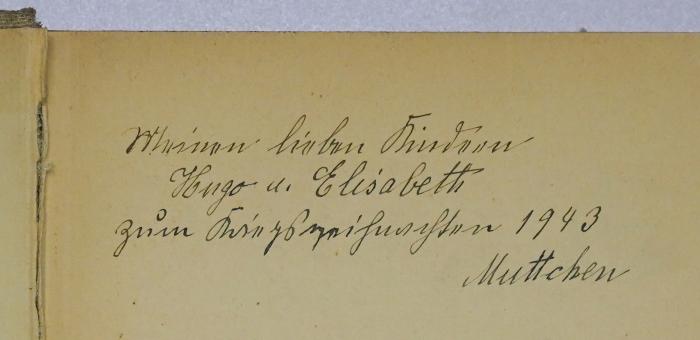 Meinen lieben Kindern
Hugo u. Elisabeth
zum Kriegsweihnachten 1943
Muttchen